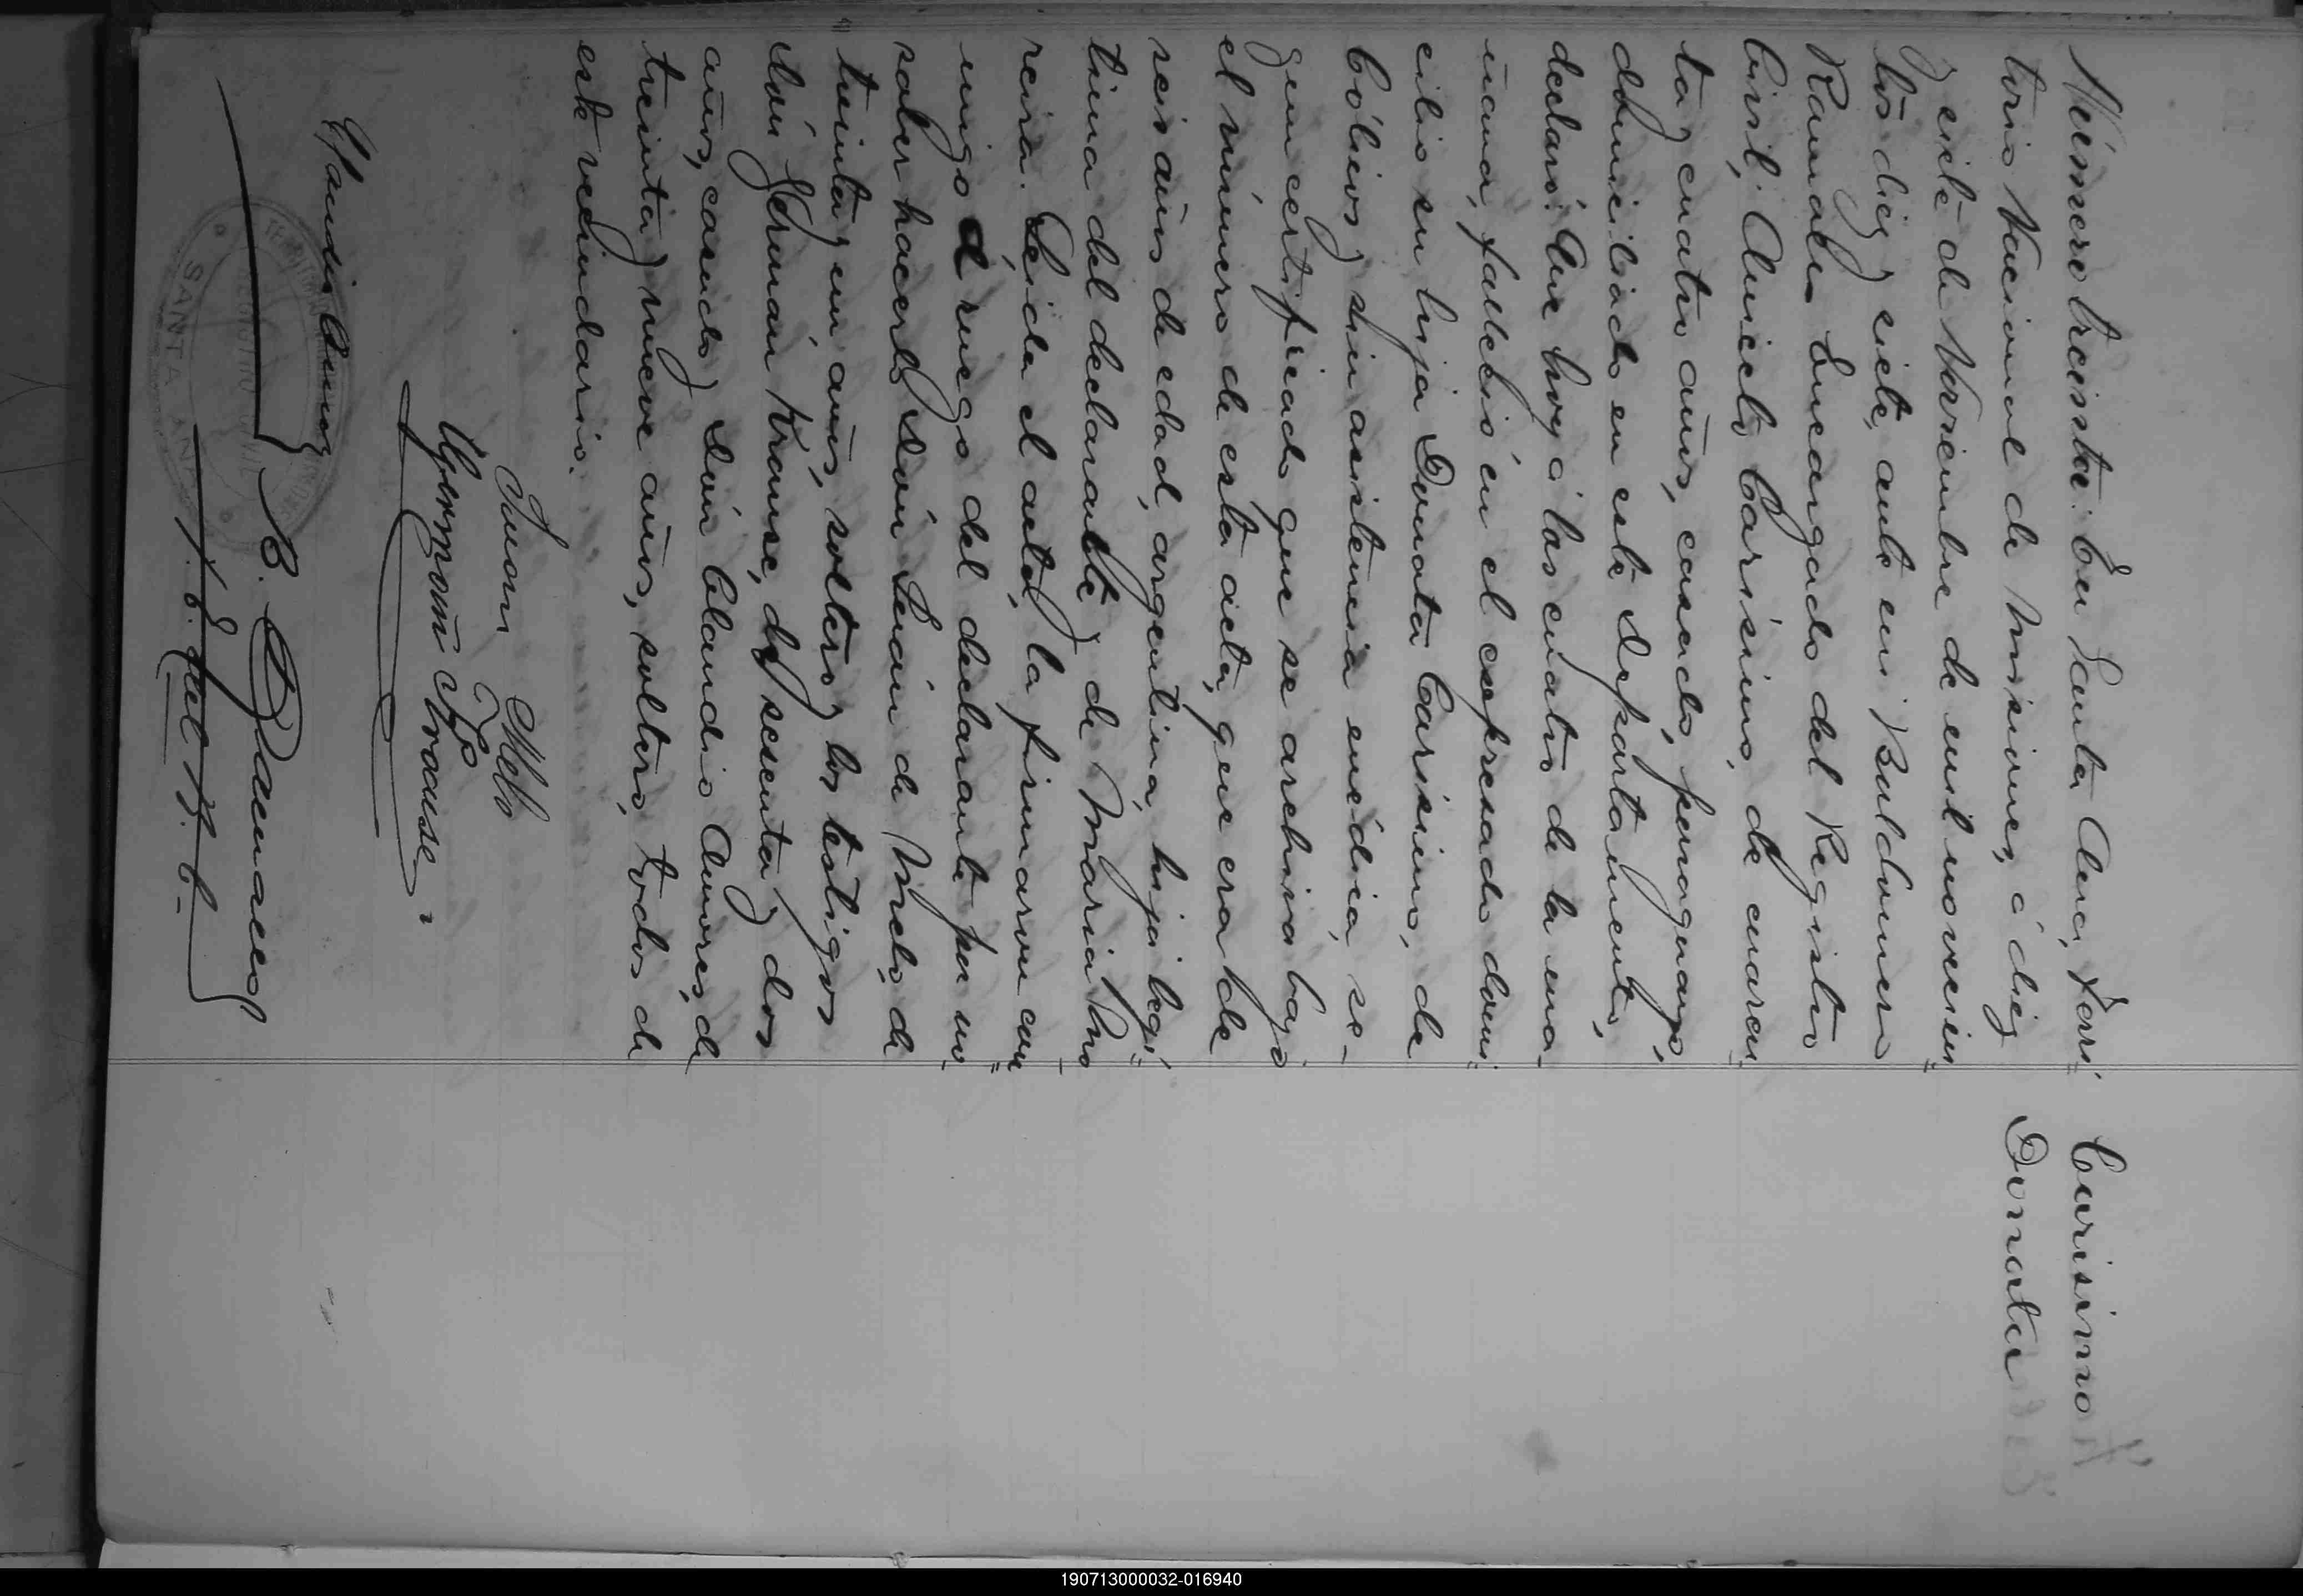 Carisimo
Donata
Número treinta: En Santa Ana, Terri
torio Nacional de Misiones, á diez
y siete de Noviembre de mil novecien
tos diez y siete, ante mi, Baldomero
Ramales Encargado del Registro
Civil; Aniceto Carisimo, de cuaren
ta y cuatro años, casado, paraguayo,
domiciliado en este Departamento,
declaró: Que hoy á las cuatro de la ma
ñana, falleció en el expresado domi
cilio su hija Donata Carisimo, de
Cólicos y sin asistencia médica, se-
gun certificado que se archiva bajo
el número de esta acta, que era de
seis años de edad, argentina, hija legi
tima del declarante y de Maria
reira. Leida el acta, la firmaron con
migo á ruego del declarante por no
saber hacerlo Don Juan de Melo, de
treinta y un años, soltero y los testigos
don Germán Krause, de sesenta y dos
años, casado y Don Claudio Amores, de
treinta y nueve años, soltero, todos de
este vecindario.
Juan Melo
Germann Krause
Claudio
B.
SANTA ANA